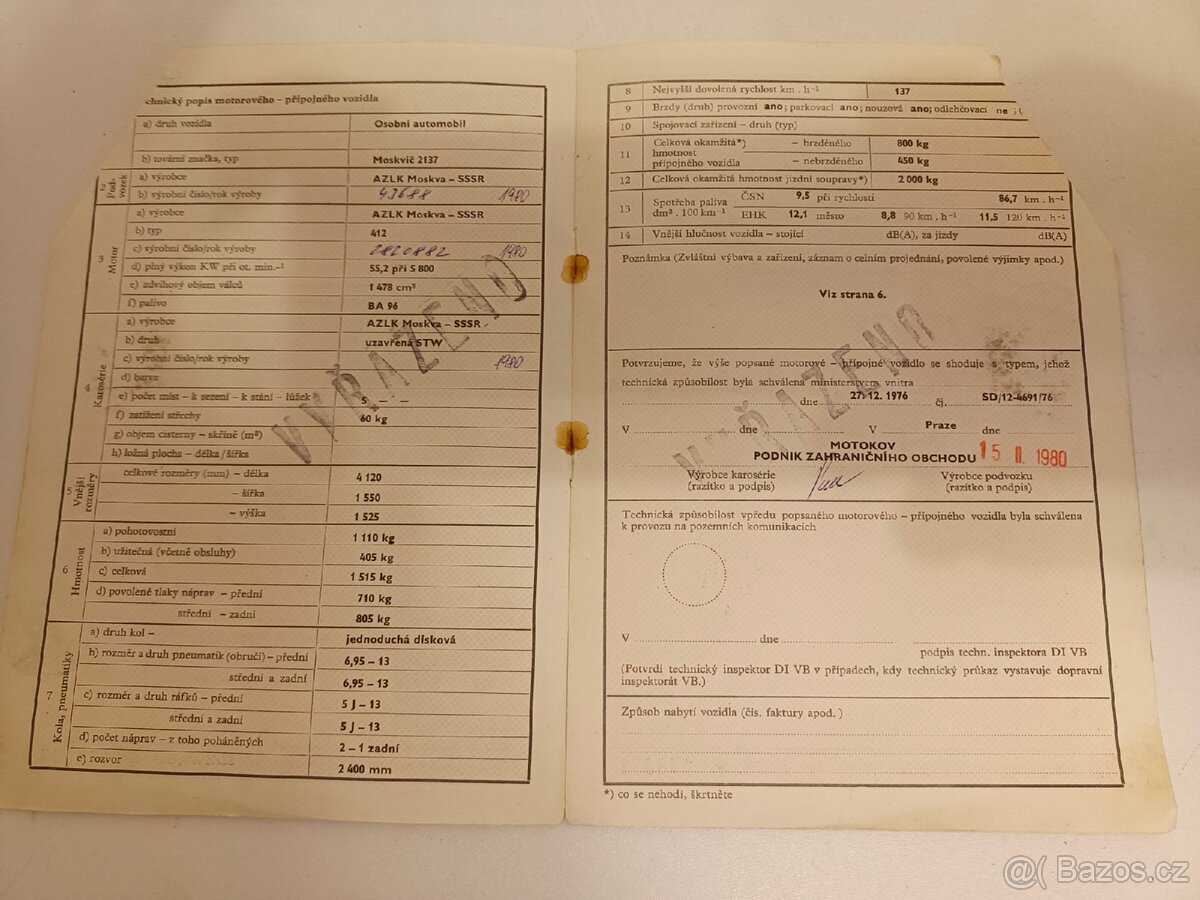 chnický popis motorového – přípojného vozidla
a) druh vozidla Osobní automobil
b) tovární značka, typ Moskvič 2137
2 Podvozek
a) výrobce AZLK Moskva – SSSR
b) výrobní číslo/rok výroby 43688 1980
3 Motor
a) výrobce AZLK Moskva – SSSR
b) typ 412
c) výrobní číslo/rok výroby 2820882 1980
d) plný výkon KW při ot. min.-¹ 55,2 při 5 800
e) zdvihový objem válců 1 478 cm³
f) palivo BA 96
4 Karosérie
a) výrobce AZLK Moskva – SSSR
b) druh uzavřená STW
c) výrobní číslo/rok výroby 1980
d) barva
e) počet míst – k sezení – k stání – lůžek 5 – –
f) zatížení střechy 60 kg
g) objem cisterny – skříně (m³)
h) ložná plocha – délka/šířka
5 Vnější rozměry
celkové rozměry (mm) – délka 4 120
– šířka 1 550
– výška 1 525
6 Hmotnost
a) pohotovostní 1 110 kg
b) užitečná (včetně obsluhy) 405 kg
c) celková 1 515 kg
d) povolené tlaky náprav – přední 710 kg
střední – zadní 805 kg
7 Kola, pneumatiky
a) druh kol – jednoduchá disková
b) rozměr a druh pneumatik (obručí) – přední 6,95 – 13
střední a zadní 6,95 – 13
c) rozměr a druh ráfků – přední 5 J – 13
střední a zadní 5 J – 13
d) počet náprav – z toho poháněných 2 – 1 zadní
e) rozvor 2 400 mm
VYŘAZENO
8 Nejvyšší dovolená rychlost km . h-¹ 137
9 Brzdy (druh) provozní ano; parkovací ano; nouzová ano; odlehčovací ne ; (
10 Spojovací zařízení – druh (typ)
11 Celková okamžitá*) hmotnost přípojného vozidla
– brzděného 800 kg
– nebrzděného 450 kg
12 Celková okamžitá hmotnost jízdní soupravy*) 2 000 kg
13 Spotřeba paliva dm³ . 100 km-¹
ČSN 9,5 při rychlosti 86,7 km . h-¹
EHK 12,1 město 8,8 90 km . h-¹ 11,5 120 km . h-¹
14 Vnější hlučnost vozidla – stojící dB(A), za jízdy dB(A)
Poznámka (Zvláštní výbava a zařízení, záznam o celním projednání, povolené výjimky apod.)
Viz strana 6.
VYŘAZENO
Potvrzujeme, že výše popsané motorové – přípojné vozidlo se shoduje s typem, jehož
technická způsobilost byla schválena ministerstvem vnitra
dne 27. 12. 1976 čj. SD/12-4691/76
V dne V Praze dne
MOTOKOV
PODNIK ZAHRANIČNÍHO OBCHODU 15 II. 1980
Výrobce karosérie Výrobce podvozku
(razítko a podpis) (razítko a podpis)
Technická způsobilost vpředu popsaného motorového – přípojného vozidla byla schválena
k provozu na pozemních komunikacích
V dne
podpis techn. inspektora DI VB
(Potvrdí technický inspektor DI VB v případech, kdy technický průkaz vystavuje dopravní
inspektorát VB.)
Způsob nabytí vozidla (čís. faktury apod.)
*) co se nehodí, škrtněte
@( Bazos.cz